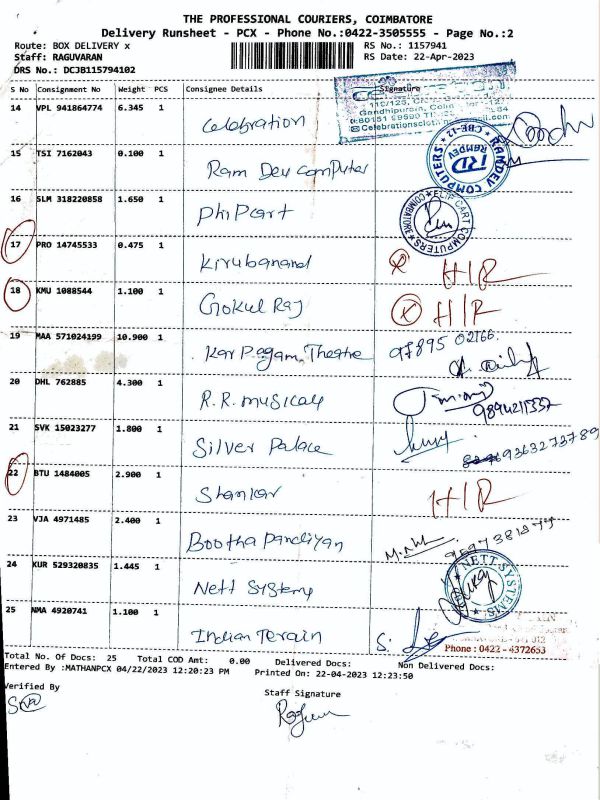 THE PROFESSIONAL COURIERS, COIMBATORE
Delivery Runsheet - PCX - Phone No.:0422-3505555 - Page No.:2
Route: BOX DELIVERY x RS No.: 1157941
Staff: RAGUVARAN RS Date: 22-Apr-2023
DRS No.: DCJB115794102
S No Consignment No Weight PCS Consignee Details Signature
14 VPL 941864774 6.345 1 Celebration
15 TSI 7162043 0.100 1 Ram Dev Computer
RAMDEV COMPUTERS CBE-12
RD RAMDEV
16 SLM 318220858 1.650 1 Phipcart
CART COMPUTERS COIMBATORE
17 PRO 14745533 0.475 1 Kirubanand H/R
18 KMU 1088544 1.100 1 Gokul Raj H/R
19 MAA 571024199 10.900 1 Kar Pagam Theatre 97895 02166
20 DHL 762885 4.300 1 R.R. musicals 9894211337
21 SVK 15023277 1.800 1 Silver Palace 9363273789
22 BTU 1484005 2.900 1 Shankar H/R
23 VJA 4971485 2.400 1 Bootha Pandiyan
24 KUR 529320835 1.445 1 Nett Systems
NETT SYSTEMS
25 NMA 4920741 1.100 1 Indian Terain
Phone : 0422 - 4372653
Total No. Of Docs: 25 Total COD Amt: 0.00 Delivered Docs: Non Delivered Docs:
Entered By :MATHANPCX 04/22/2023 12:20:23 PM Printed On: 22-04-2023 12:23:50
Verified By Staff Signature